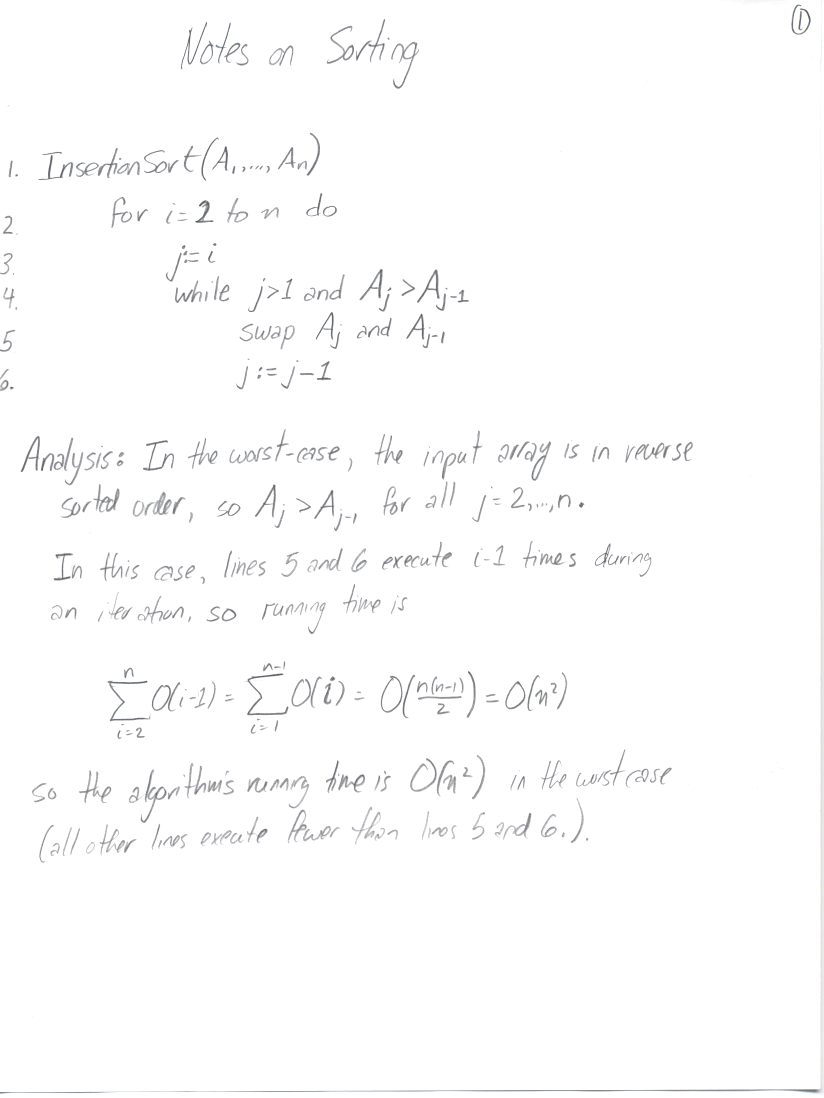 ①
Notes on Sorting
1. InsertionSort(A₁,...., Aₙ)
2. for i=2 to n do
3. j:= i
4. while j>1 and Aⱼ > Aⱼ₋₁
5 swap Aⱼ and Aⱼ₋₁
6. j := j-1
Analysis: In the worst-case, the input array is in reverse
sorted order, so Aⱼ > Aⱼ₋₁ for all j=2,...,n.
In this case, lines 5 and 6 execute i-1 times during
an iteration, so running time is
∑_{i=2}^{n} O(i-1) = ∑_{i=1}^{n-1} O(i) = O(n(n-1)/2) = O(n²)
so the algorithm's running time is O(n²) in the worst case
(all other lines execute fewer than lines 5 and 6.).